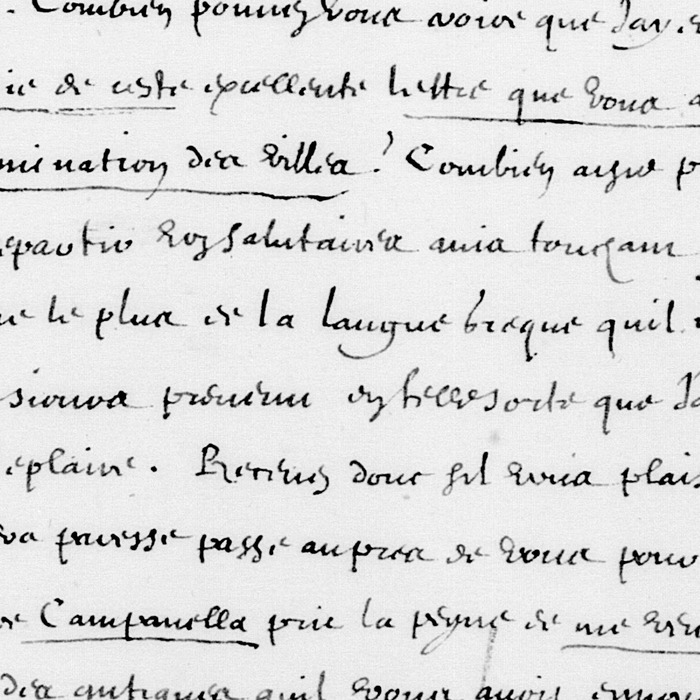 . Combien pouvez vous avoir que J'ay
de ceste excellente lettre que vous
mination des villes? Combien ay je
epartir voz salutaires avis touchant
ue le plus de la langue breque qu'il
sieurs prennent en telle sorte que
eplaire. Recevez donc s'il vous plais
paresse passe aupres de vous pour
Campanella prie la peyne de me
des antiques qu'il vous avoit